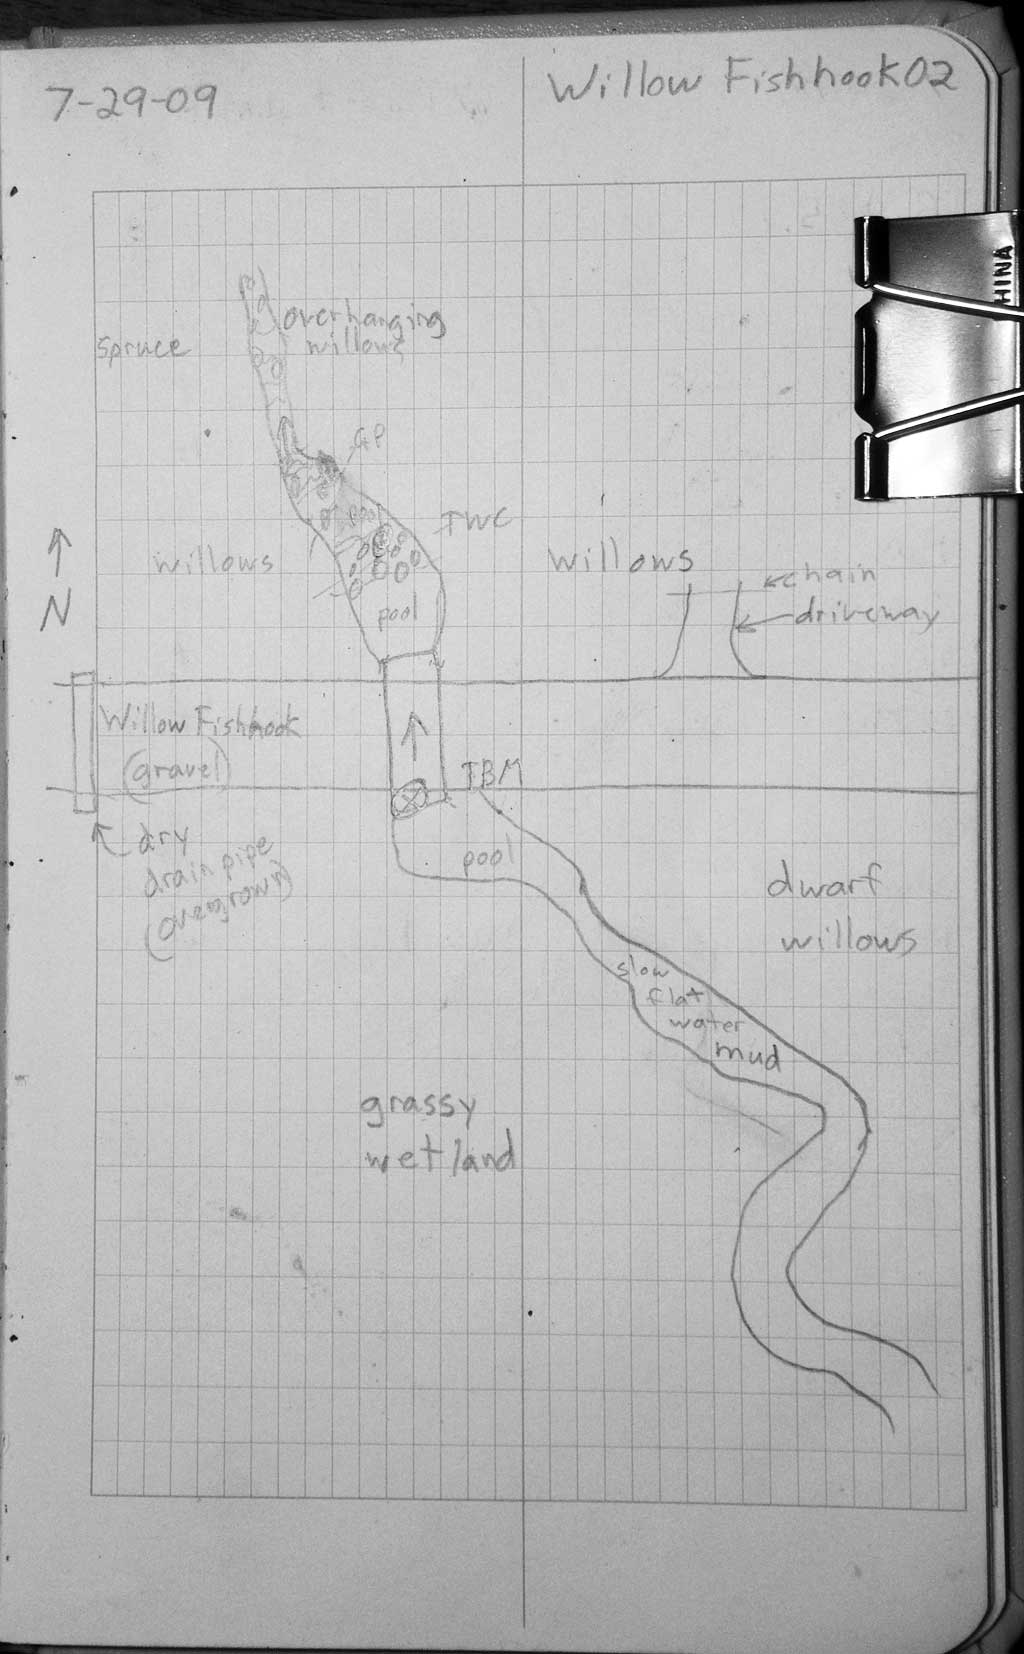 7-29-09
Willow Fishhook02
HINA
overhanging
willows
Spruce
GP
pool
TWC
willows
willows
chain
driveway
N
pool
Willow Fishhook
(gravel)
TBM
dry
drain pipe
(overgrown)
pool
dwarf
willows
slow
flat
water
mud
grassy
wetland